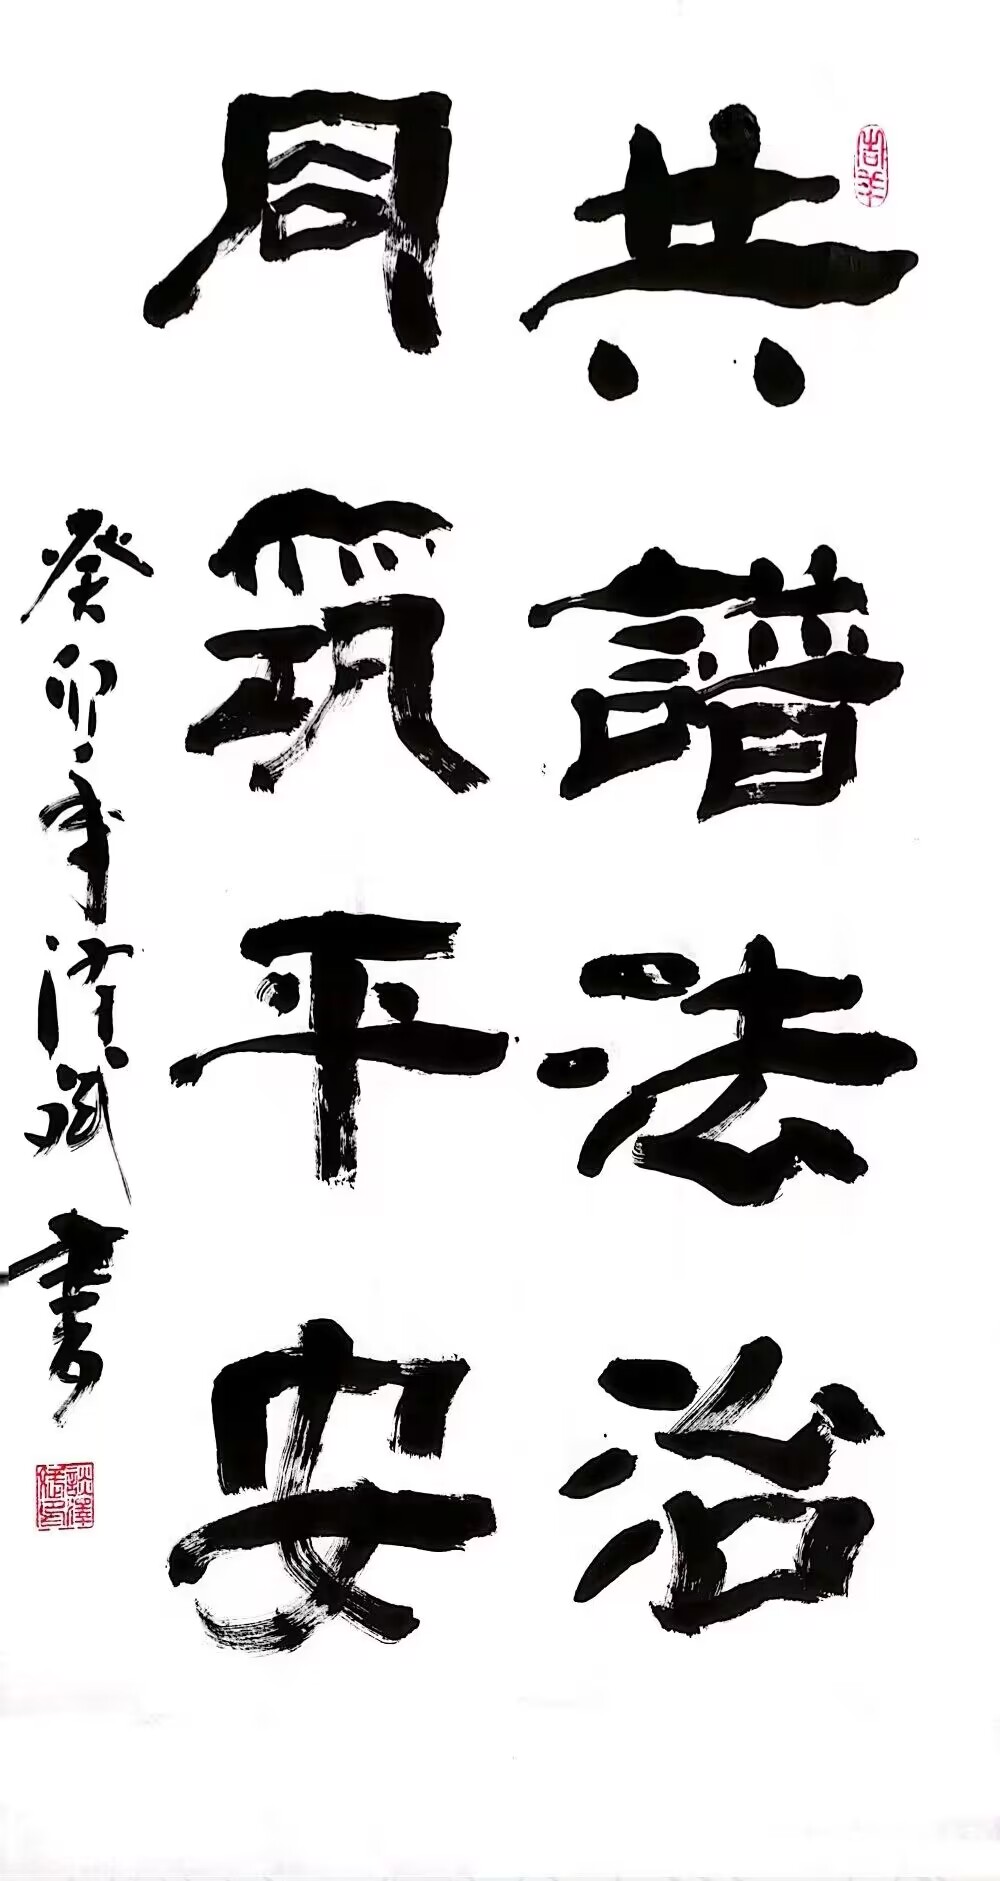 共譜法治
同筑平安
癸卯年澤書